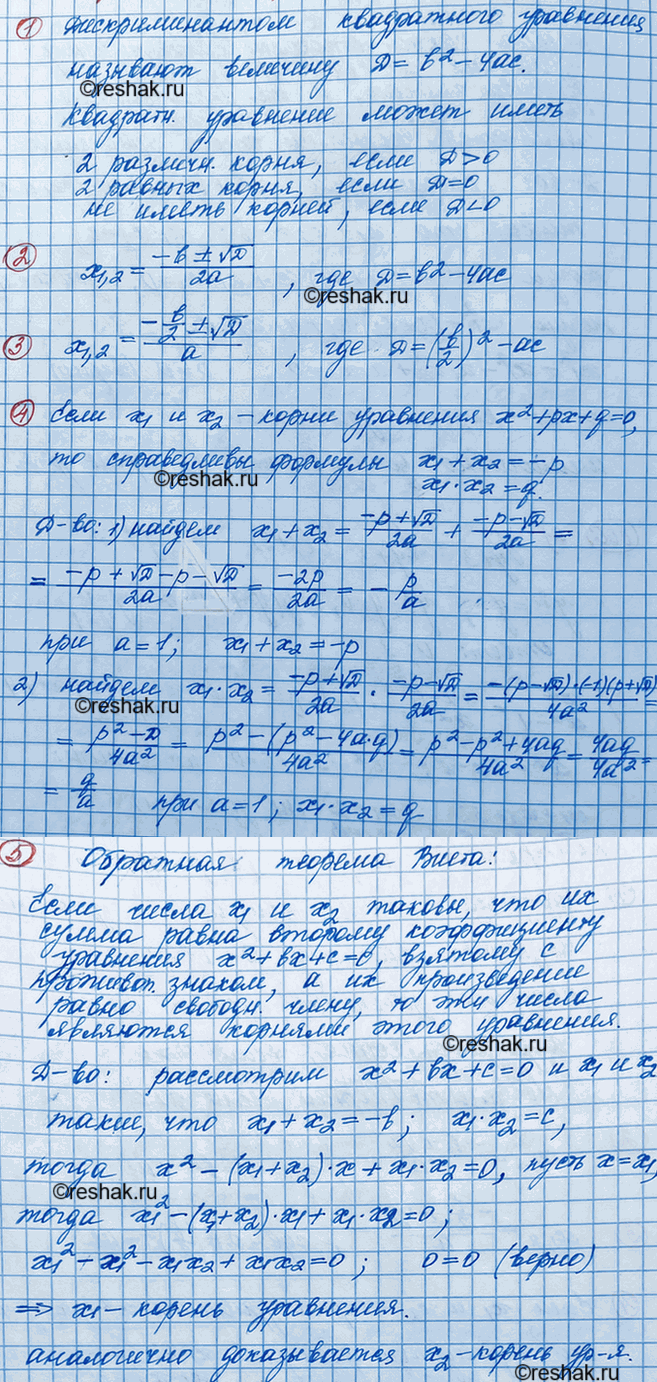 ① Дискриминантом квадратного уравнения
называют величину D = b² - 4ac.
©reshak.ru
Квадратн. уравнение может иметь
2 различн. корня, если D > 0
2 равных корня, если D = 0
не иметь корней, если D < 0
② x₁,₂ = (-b ± √D)/2a, где D = b² - 4ac
©reshak.ru
③ x₁,₂ = (-b/2 ± √D)/a, где D = (b/2)² - ac
④ Если x₁ и x₂ - корни уравнения x² + px + q = 0,
то справедливы формулы x₁ + x₂ = -p
©reshak.ru
x₁·x₂ = q.
Д-во: 1) найдем x₁ + x₂ = (-p + √D)/2a + (-p - √D)/2a =
= (-p + √D - p - √D)/2a = -2p/2a = -p/a
при a = 1; x₁ + x₂ = -p
2) найдем x₁·x₂ = (-p + √D)/2a · (-p - √D)/2a = (-(p - √D)·(-1)(p + √D))/4a² =
= (p² - D)/4a² = (p² - (p² - 4a·q))/4a² = (p² - p² + 4aq)/4a² = 4aq/4a² =
= q/a при a = 1; x₁·x₂ = q
⑤ Обратная теорема Виета:
Если числа x₁ и x₂ таковы, что их
сумма равна второму коэффициенту
уравнения x² + bx + c = 0, взятому с
противоп. знаком, а их произведение
равно свободн. члену, то эти числа
являются корнями этого уравнения.
©reshak.ru
Д-во: рассмотрим x² + bx + c = 0 и x₁ и x₂
такие, что x₁ + x₂ = -b; x₁·x₂ = c,
тогда x² - (x₁ + x₂)·x + x₁·x₂ = 0, пусть x = x₁,
©reshak.ru
тогда x₁² - (x₁ + x₂)·x₁ + x₁·x₂ = 0;
x₁² - x₁² - x₁x₂ + x₁x₂ = 0; 0 = 0 (верно)
⇒ x₁ - корень уравнения.
©reshak.ru
аналогично доказывается x₂ - корень ур-я.